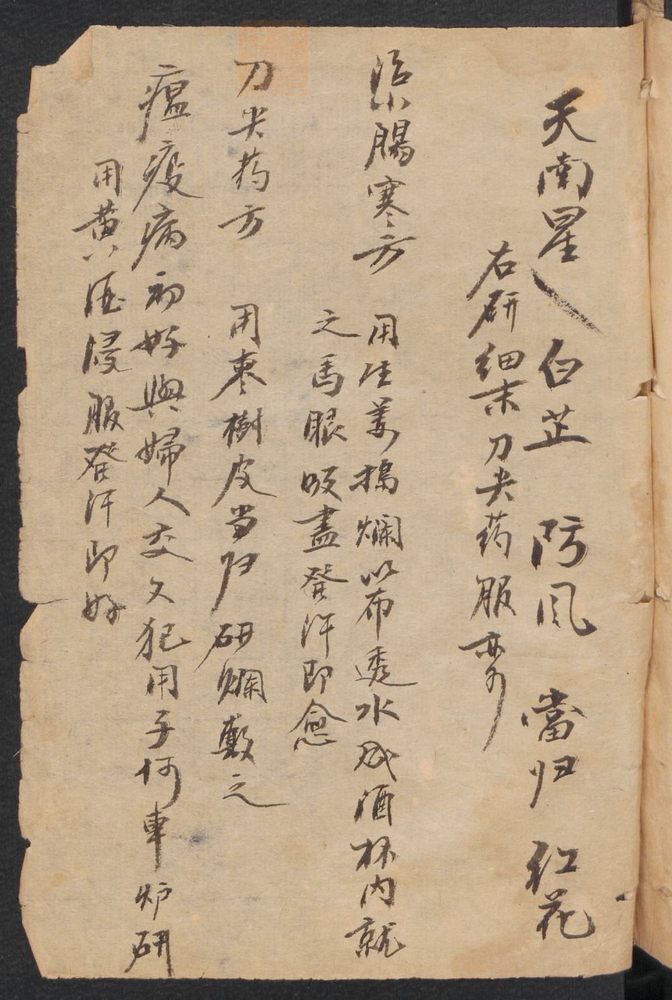 天南星 白芷 防风 當归 红花
右研细末刀尖药服亦可
治小腸寒方 用生姜搗爛以布透水成酒杯内就
之馬眼吸盡發汗即愈
刀尖药方 用棗樹皮当归研爛敷之
瘟疫病初好與婦人交又犯用子河車炉研
用黄酒浸服發汗即好